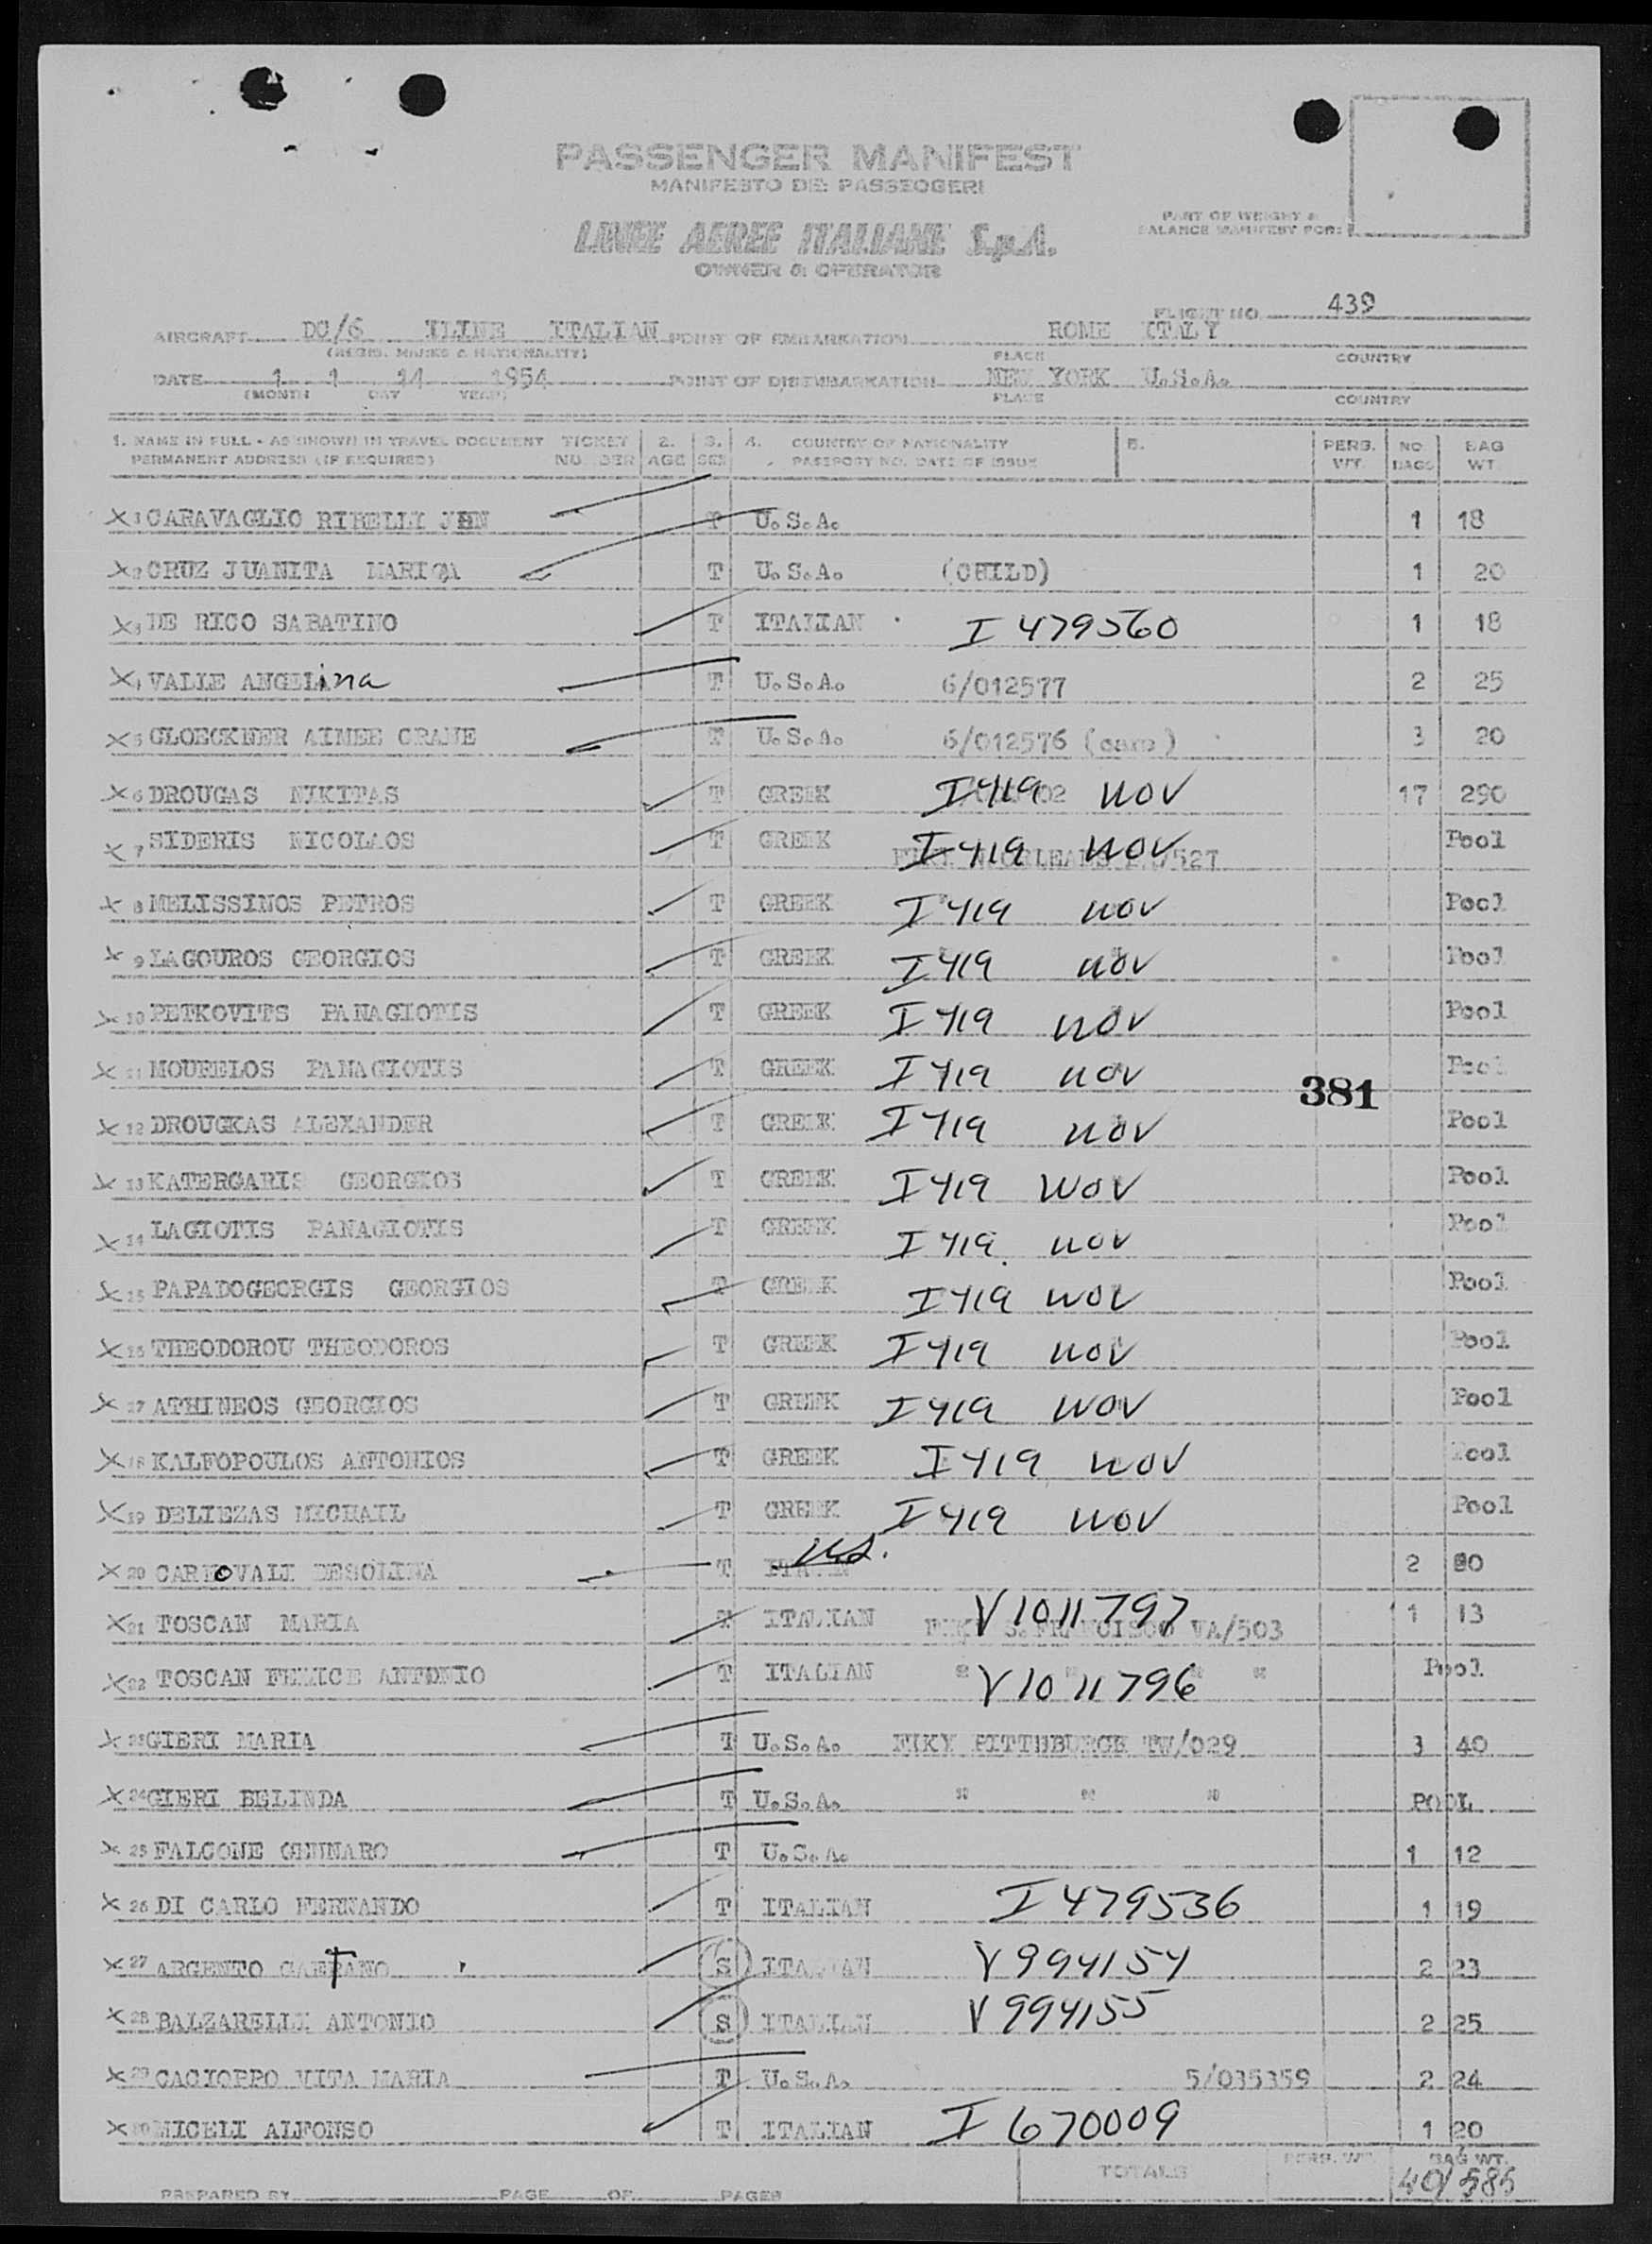 PASSENGER MANIFEST
MANIFESTO DEI PASSEGGERI
LINEE AEREE ITALIANE S.p.A.
OWNER & OPERATOR
PART OF WEIGHT &
BALANCE MANIFEST FOR:
FLIGHT NO. 439
AIRCRAFT DC/6 ILINE ITALIAN POINT OF EMBARKATION ROME ITALY
(REGIS. MARKS & NATIONALITY) PLACE COUNTRY
DATE 1 1 14 1954 POINT OF DISEMBARKATION NEW YORK U.S.A.
(MONTH DAY YEAR) PLACE COUNTRY
1. NAME IN FULL - AS SHOWN IN TRAVEL DOCUMENT TICKET 2. 3. 4. COUNTRY OF NATIONALITY 5. PERS. NO. BAG
PERMANENT ADDRESS (IF REQUIRED) NUMBER AGE SEX PASSPORT NO. DATE OF ISSUE WT. BAGS WT.
X 1 CARAVAGLIO RIBELLI JEN T U.S.A. 1 18
X 2 CRUZ JUANITA MARIA T U.S.A. (CHILD) 1 20
X 3 DE RICO SABATINO T ITALIAN I 479560 1 18
X 4 VALLE ANGELina T U.S.A. 6/012577 2 25
X 5 GLOECKNER AIMEE CRANE T U.S.A. 6/012576 3 20
X 6 DROUGAS NIKITAS T GREEK I419 NOV 17 290
X 7 SIDERIS NICOLAOS T GREEK I419 NOV Pool
X 8 MELISSINOS PETROS T GREEK I419 NOV Pool
X 9 LAGOUROS GEORGIOS T GREEK I419 NOV Pool
X 10 PETKOVITS PANAGIOTIS T GREEK I419 NOV Pool
X 11 MOURELOS PANAGIOTIS T GREEK I419 NOV Pool
381
X 12 DROUGKAS ALEXANDER T GREEK I419 NOV Pool
X 13 KATERGARIS GEORGIOS T GREEK I419 NOV Pool
X 14 LAGIOTIS PANAGIOTIS T GREEK I419 NOV Pool
X 15 PAPADOGEORGIS GEORGIOS T GREEK I419 NOV Pool
X 16 THEODOROU THEODOROS T GREEK I419 NOV Pool
X 17 ATHINEOS GEORGIOS T GREEK I419 NOV Pool
X 18 KALFOPOULOS ANTONIOS T GREEK I419 NOV Pool
X 19 DELIEZAS MICHAIL T GREEK I419 NOV Pool
X 20 CARNOVALI DESOLINA T US. 2
X 21 TOSCAN MARIA T ITALIAN V1011797 S. FRANCISCO VA/503 1 13
X 22 TOSCAN FELICE ANTONIO T ITALIAN " V1011796 " Pool
X 23 GIERI MARIA T U.S.A. FIKY PITTSBURGH TW/029 3 40
X 24 GIERI BELINDA T U.S.A. " " " POOL
X 25 FALCONE GENNARO T U.S.A. 1 12
X 26 DI CARLO FERNANDO T ITALIAN I 479536 1 19
X 27 ARGENTO GAETANO S ITALIAN V994154 2 23
X 28 BALZARELLI ANTONIO S ITALIAN V994155 2 25
X 29 CACIOPPO VITA MARIA T U.S.A. 5/035359 2 24
X 30 MICELI ALFONSO T ITALIAN I 670009 1 20
TOTALS PERS. WT. BAG WT.
PREPARED BY PAGE OF PAGES 40/585